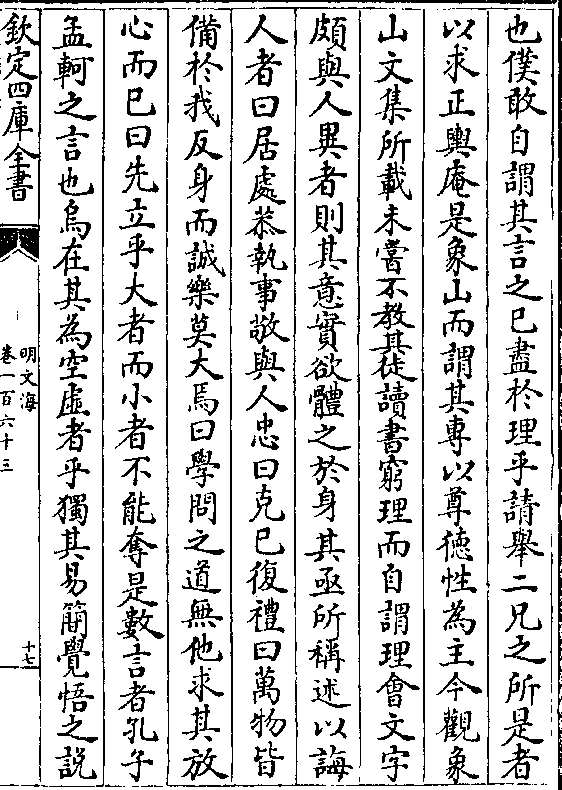 也僕敢自謂其言之已盡於理乎請舉二兄之所是者
以求正輿庵是象山而謂其專以尊德性為主今觀象
山文集所載未嘗不教其徒讀書窮理而自謂理會文字
頗與人異者則其意實欲體之於身其亟所稱述以誨
人者曰居處恭執事敬與人忠曰克已復禮曰萬物皆
備於我反身而誠樂莫大焉曰學問之道無他求其放
心而已曰先立乎大者而小者不能奪是數言者孔子
孟軻之言也烏在其為空虛者乎獨其易簡覺悟之説
欽定四庫全書
明文海
卷一百六十三
十七